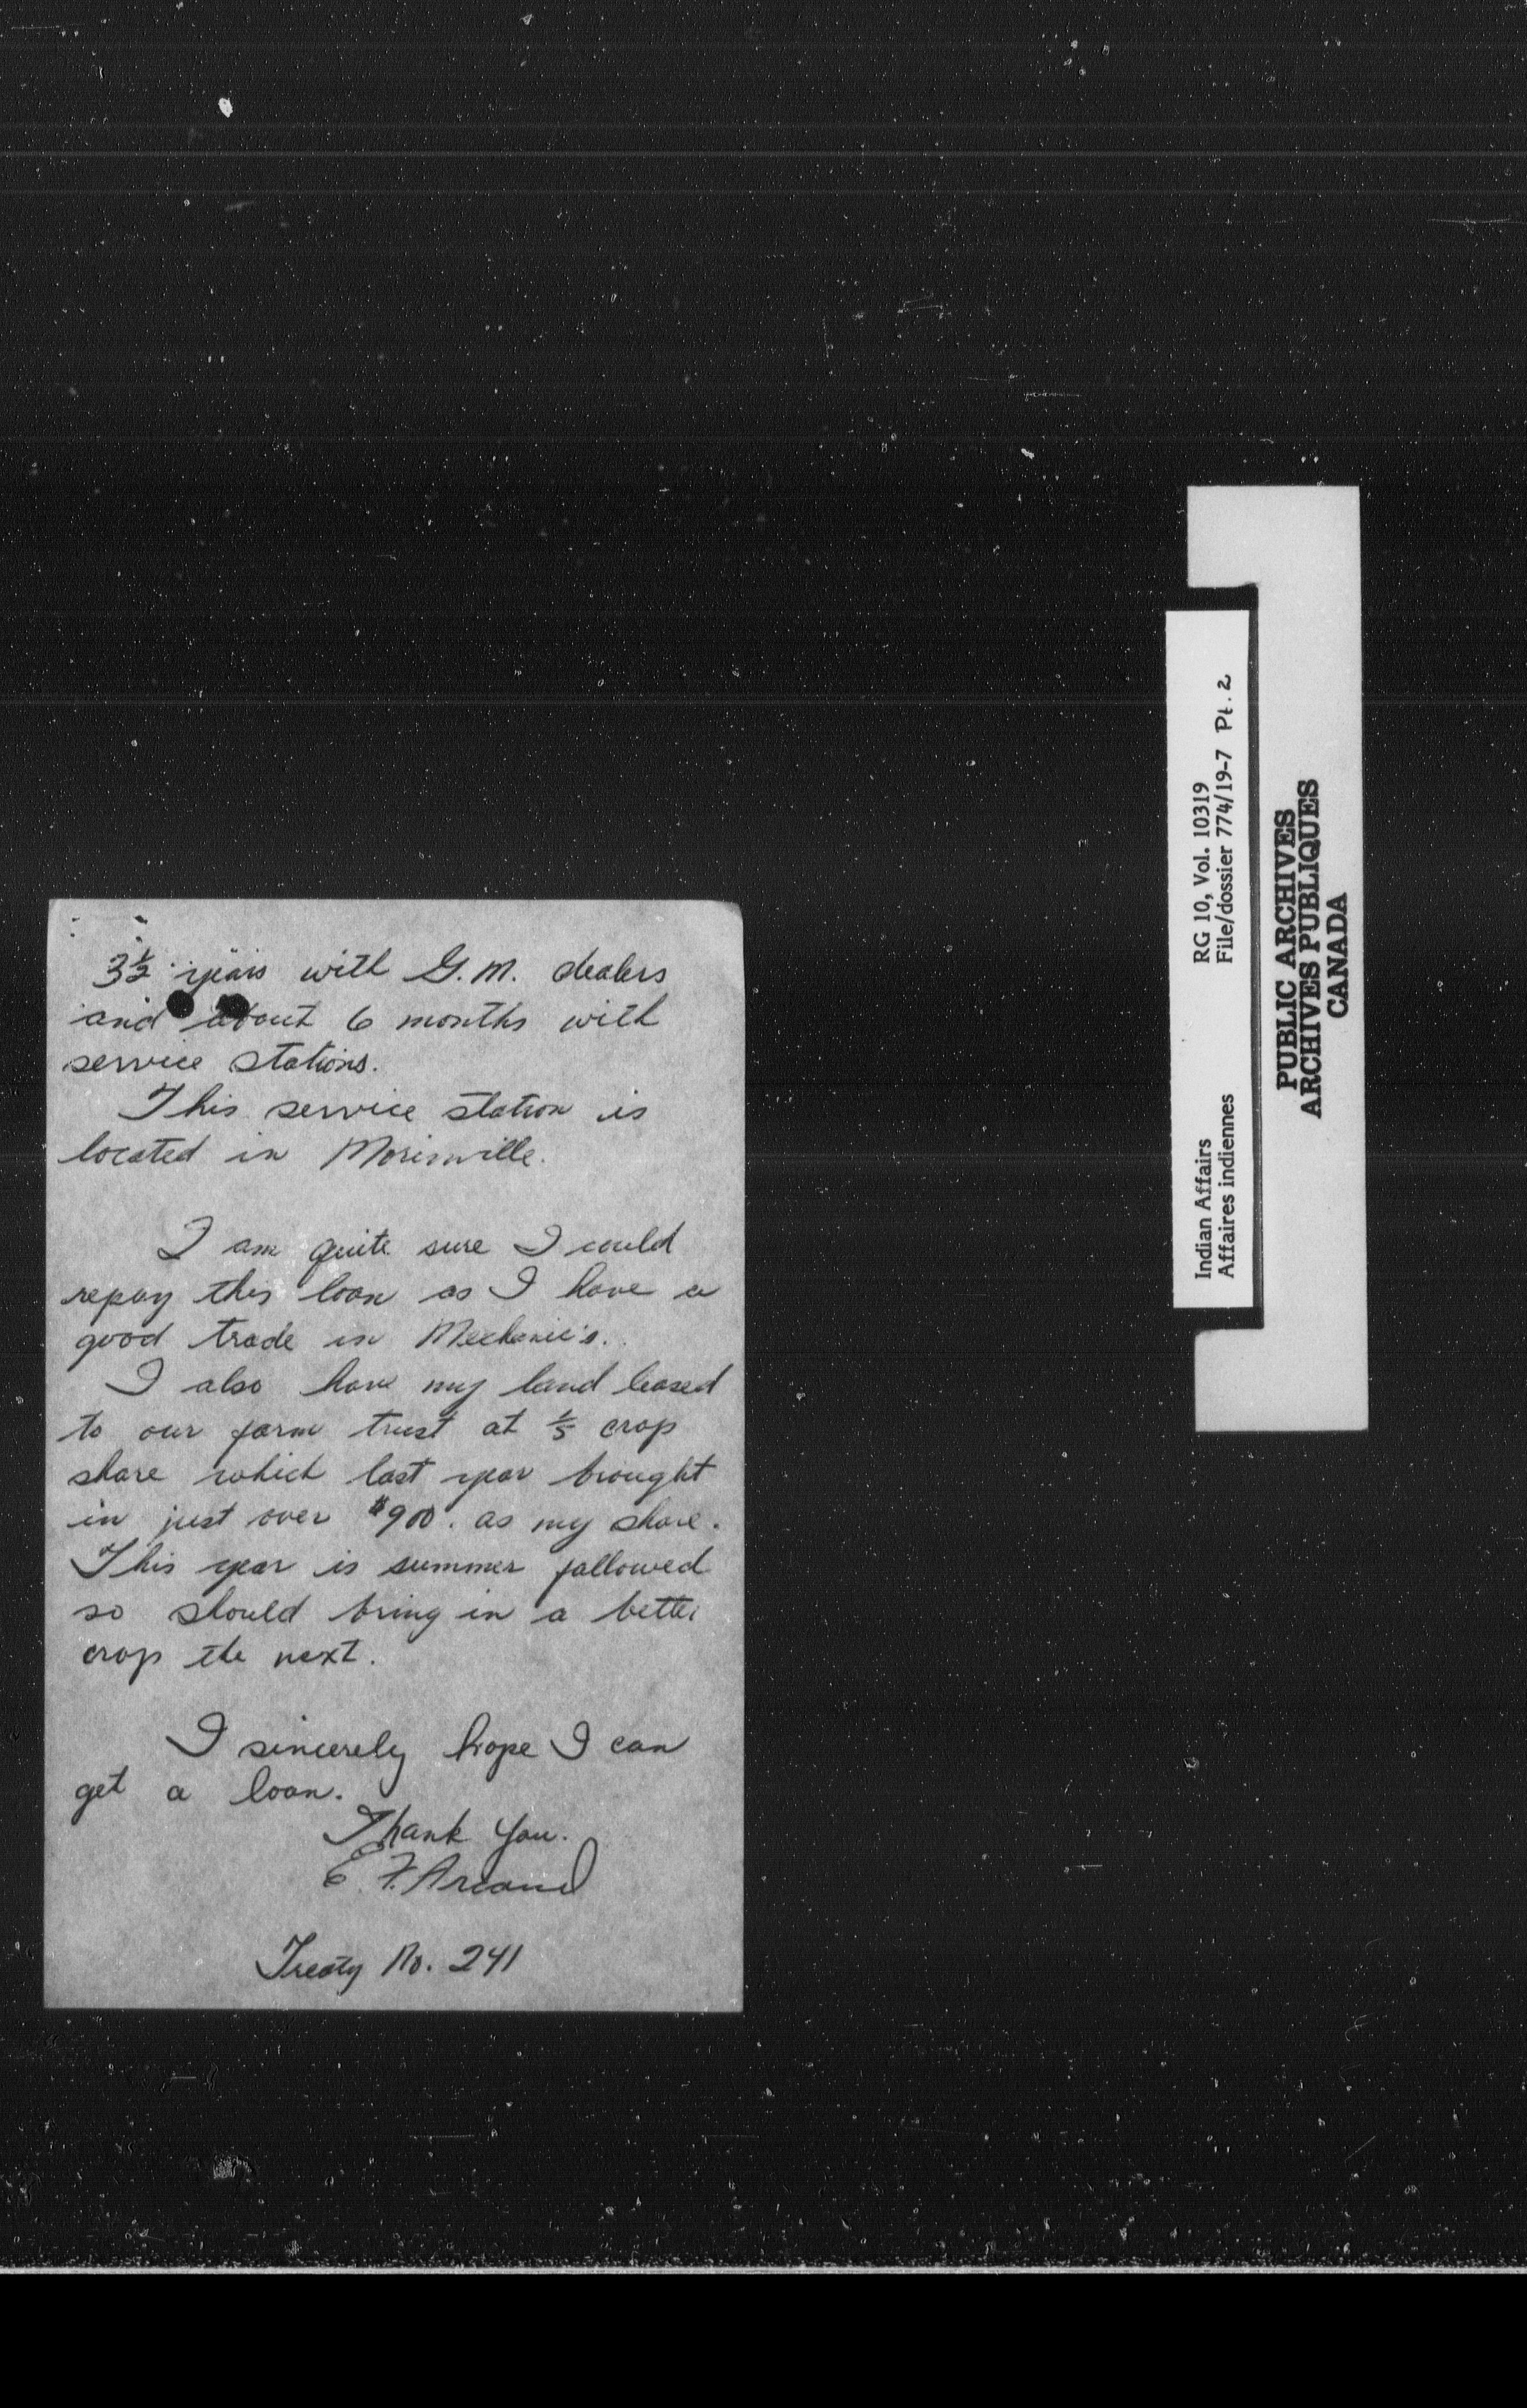 3½ years with G.M. dealers
and about 6 months with
service stations.
This service station is
located in Morinville.
I am quite sure I could
repay this loan as I have a
good trade in Mechanic's.
I also have my land leased
to our farm trust at ⅕ crop
share which last year brought
in just over $900. as my share.
This year is summer fallowed
so should bring in a better
crop the next.
I sincerely hope I can
get a loan.
Thank You.
E. F. Arcand
Treaty No. 241
Indian Affairs RG 10, Vol. 10319
Affaires indiennes File/dossier 774/19-7 Pt. 2
PUBLIC ARCHIVES
ARCHIVES PUBLIQUES
CANADA